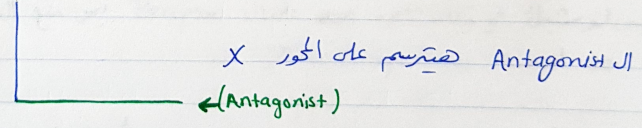 ال Antagonist هيترسم على المحور X
←(Antagonist)